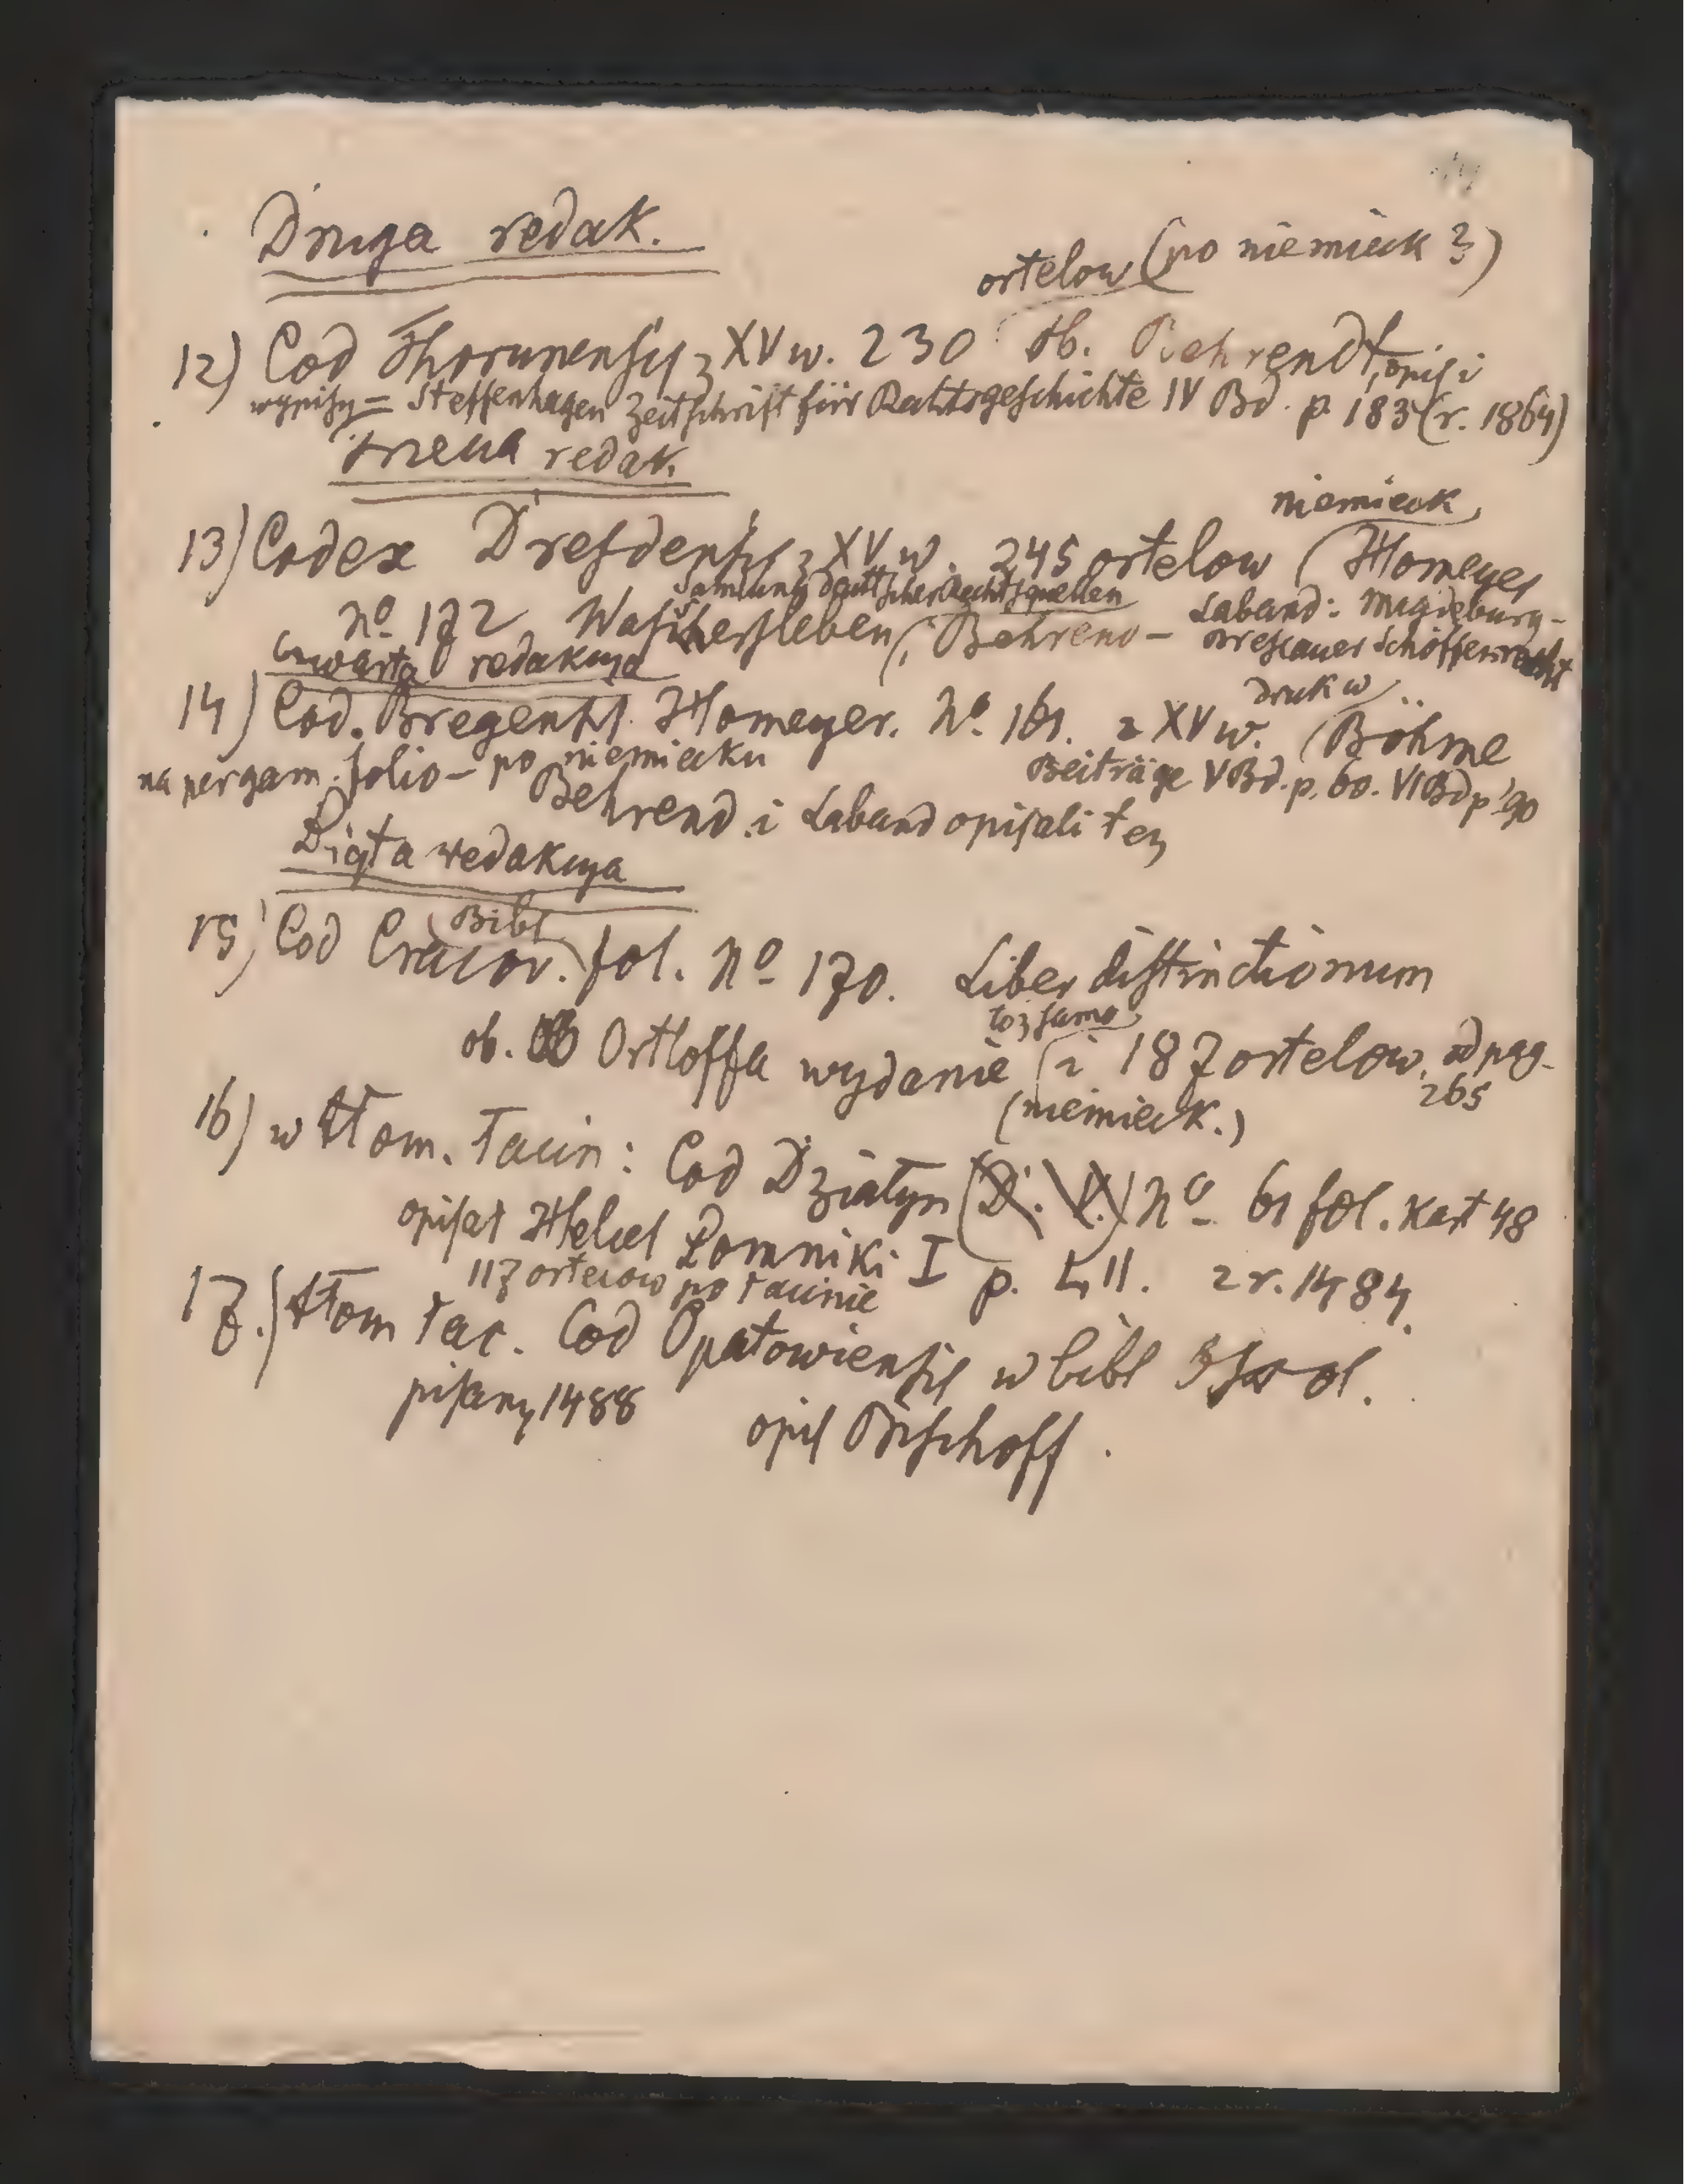 Druga redak.
ortelow (po niemieck?)
12) Cod Thorunensis z XV w. 230 ob. Behrendt, opis i
wypisy = Steffenhagen Zeitschrift für Rechtsgeschichte IV Bd. p 183 (r. 1864)
Trzecia redak.
niemieck
13) Codex Dresdensis z XV w. 245 ortelow (Homeyer
Samlung deutscher Rechtsquellen
No 172 Wasserschleben, Behrend - Laband: Magdeburg-
Breslauer Schöffenrecht
Czwarta redakcya
druk w
14) Cod. Bregensis. Homeyer. No 161. z XV w. (Böhme
na pergam. folio - po niemiecku Beiträge V Bd. p. 60. VI Bd p. 90
Behrend i Laband opisali też
Piąta redakcya
Bibl
15) Cod Cracov. fol. No 170. Liber distinctionum
toż samo
ob. Ortloffa wydanie i 187 ortelow, od pag.
265
(niemieck.)
16) w tłom. łacin: Cod Działyn (D. V.) No 61 fol. kart 48
opisał Helcel Pomniki I p. LII. z r. 1484.
117 ortelow po łacinie
17.) tłom łac. Cod Opatowiensis w bibl
pisany 1488 opis Bischoff.